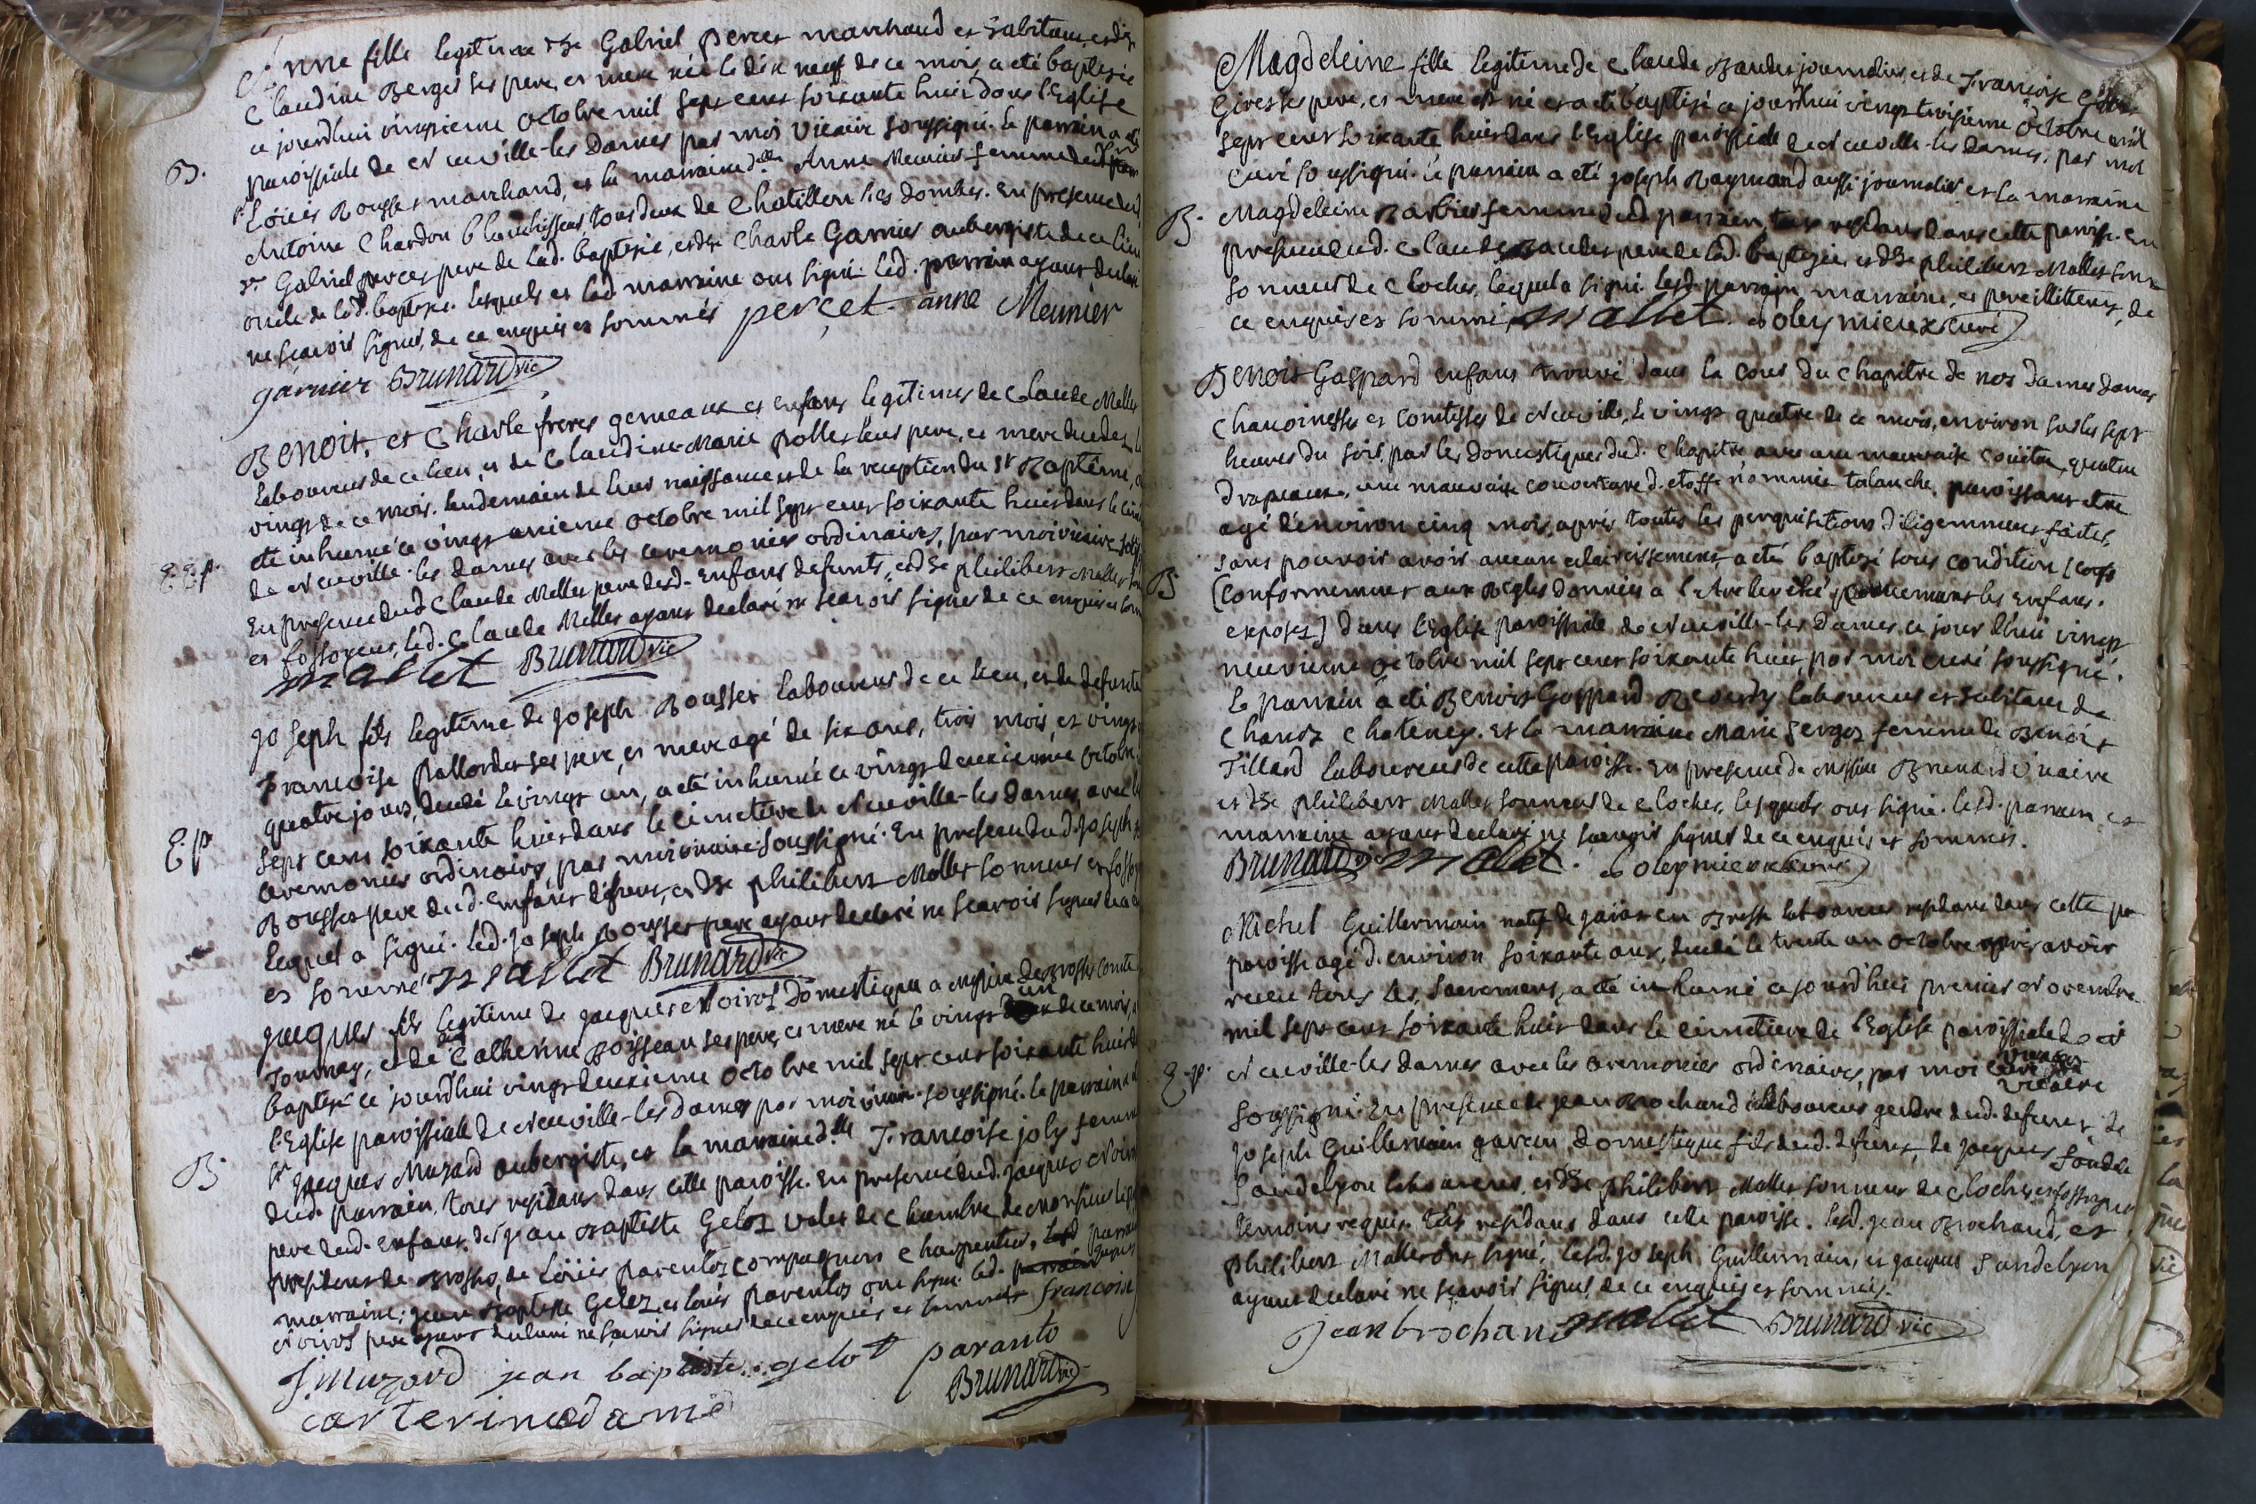 Anne fille legitime de Sr Gabriel percet marchand et habitant, et de
Claudine Berger ses pere, et mere née le dix neuf de ce mois, a eté baptisée
ce jourdhui vingtieme octobre mil sept cent soixante huit dans l'Eglise
B.
paroissiale de Neuville-les Dames par moi vicaire soussigné. le parrain a eté
Sr Loüis Rousset marchand, et la marraine dlle Anne Meunier femme du
Antoine Chardon Blanchisseur, tous deux de Chatillon les dombes. En presence dud.
Sr Gabriel percet pere de lad. baptisée, et de Charle Garnier aubergiste de ce lieu
oncle de lad. baptisée. lesquels et lad marraine ont signé. led. parrain ayant declaré
ne scavoir signer, de ce enquis et sommés percet anne Meunier
garnier Brunard vic
Benoit, et Charle freres gemeaux et enfans legitimes de Claude Mallet
laboureur de ce lieu, et de Claudine-Marie pollet leur pere, et mere decedez le
vingt de ce mois. lendemain de leur naissance et de la reception du St Baptême, ont
eté inhumé ce vingt unieme octobre mil sept cent soixante huit dans le
E.E.p.
de Neuville-les dames avec les ceremonies ordinaires, par moi vicaire
En presence dud Claude Mallet pere desd. Enfans defunts, et de philibert Mallet
et fossoyeur, led. Claude Mallet ayant declaré ne scavoir signer de ce enquis et
mallet Brunard vic
Joseph fils legitime de Joseph Rousset laboureur de ce lieu, et de defunte
Francoise pallordet ses pere, et mere agé de six ans, trois mois et vingt
quatre jours, decedé le vingt un, a eté inhumé ce vingt deuxieme octobre
E.p
sept cent soixante huit dans le cimetiere de Neuville-les dames, avec les
ceremonies ordinaires, par moi vicaire soussigné. En presence dud. Joseph
Rousset pere dud. Enfant defunt, et de philibert Mallet sonneur et fossoyeur
lequel a signé. led. Joseph Rousset pere ayant declaré ne scavoir signer de ce
et sommé mallet Brunard vic
Jacques fils legitime de jacques Noirot Domestique a Messire de Brosse comte
Tournay, et de Catherine Boisseau ses pere, et mere né le vingt un de ce mois,
baptisé ce jourdhui vingt deuxieme octobre mil sept cent soixante huit
l'Eglise paroissiale de Neuville-les dames par moi vicaire soussigné. le parrain a
B
Sr Jacques Muzard aubergiste, et la marraine dlle Francoise joly femme
dud. parrain, tous residans dans cette paroisse. En presence dud. jacques Noirot
pere dud. Enfant. de jean Baptiste Gelot valet de Chambre de monsieur le
president de Brosse, de Loüis parentoz compagnon charpentier.
marraine, jean Baptiste Gelez, et louis parentoz ont signé. led.
Noirot pere ayant declaré ne scavoir signer de ce enquis et sommés francoise
J. Muzard jean baptiste gelot paranto
Brunard vic
carterine dame
Magdeleine fille legitime de Claude Baudet journalier et de Françoise
Giret ses pere, et mere est né et a eté baptisé ce jourdhui vingt troisieme octobre mil
sept cent soixante huit dans l'Eglise paroissiale de Neuville-les dames, par moi
Curé soussigné. le parrain a eté joseph Raymand aussi journalier et la marraine
B.
Magdeleine Barbier femme dud. parrain, tous residans dans cette paroisse. En
presence dud. Claude Baudet pere de lad. baptisée et de philibert Mallet
sonneur de Cloches, lequel a signé. lesd. parrain, marraine, et pere illitteres, de
ce enquis et sommé, mallet. Soleymieux curé
Benoit Gaspard enfant trouvé dans la cour du chapitre de nos dames dames
Chanoinesses et Comtesses de Neuville, le vingt quatre de ce mois, environ sur les sept
heures du soir, par les domestiques dud. Chapitre avec un mauvaise couëtre, quatre
drapeaux, une mauvaise couverture d. etoffe nommée talanche. paroissant etre
agé d'environ cinq mois, après toutes les perquisitions diligemment faites,
sans pouvoir avoir aucun eclaircissement, a eté baptisé sous condition
B
(Conformement aux Regles données a l'Archevêché concernant les enfans
exposez) dans l'Eglise paroissiale de Neuville-les Dames ce jour dhui vingt
neuvieme octobre mil sept cent soixante huit, par moi curé soussigné.
Le parrain a eté Benoit Gaspard Reoudy laboureur et habitant de
Chanoz Chatenay. et la marraine Marie Gergoz femme de Benoit
Tillard laboureur de cette paroisse. En presence de Messire Brunard vicaire
et de philibert Mallet sonneur de Cloches, lesquels ont signé. lesd. parrain, et
marraine ayant declaré ne scavoir signer de ce enquis et sommés.
Brunard vic mallet. Soleymieux curé
Michel Guillermain natif de jaiat en Bresse laboureur residant dans cette
paroisse agé d. environ soixante ans, decedé le trente un octobre après avoir
receu tous les Sacremens, a été inhumé ce jourd'hui premier Novembre
mil sept cent soixante huit dans le cimetiere de l'Eglise paroissiale de
E.p.
Neuville-les dames avec les ceremonies ordinaires, par moi vicaire
soussigné. En presence de jean Brochand laboureur gendre dud. defunt, de
Joseph Guillermain garçon domestique fils dud. defunt, de jacques
Sandelyon laboureur, et de philibert Mallet sonneur de cloches et fossoyeur
temoins requis tous residans dans cette paroisse. lesd. jean Brochand, et
philibert Mallet ont signé, lesd. joseph Guillermain, et jacques Sandelyon
ayant declaré ne scavoir signer de ce enquis et sommés.
jean brochand mallet Brunard vic